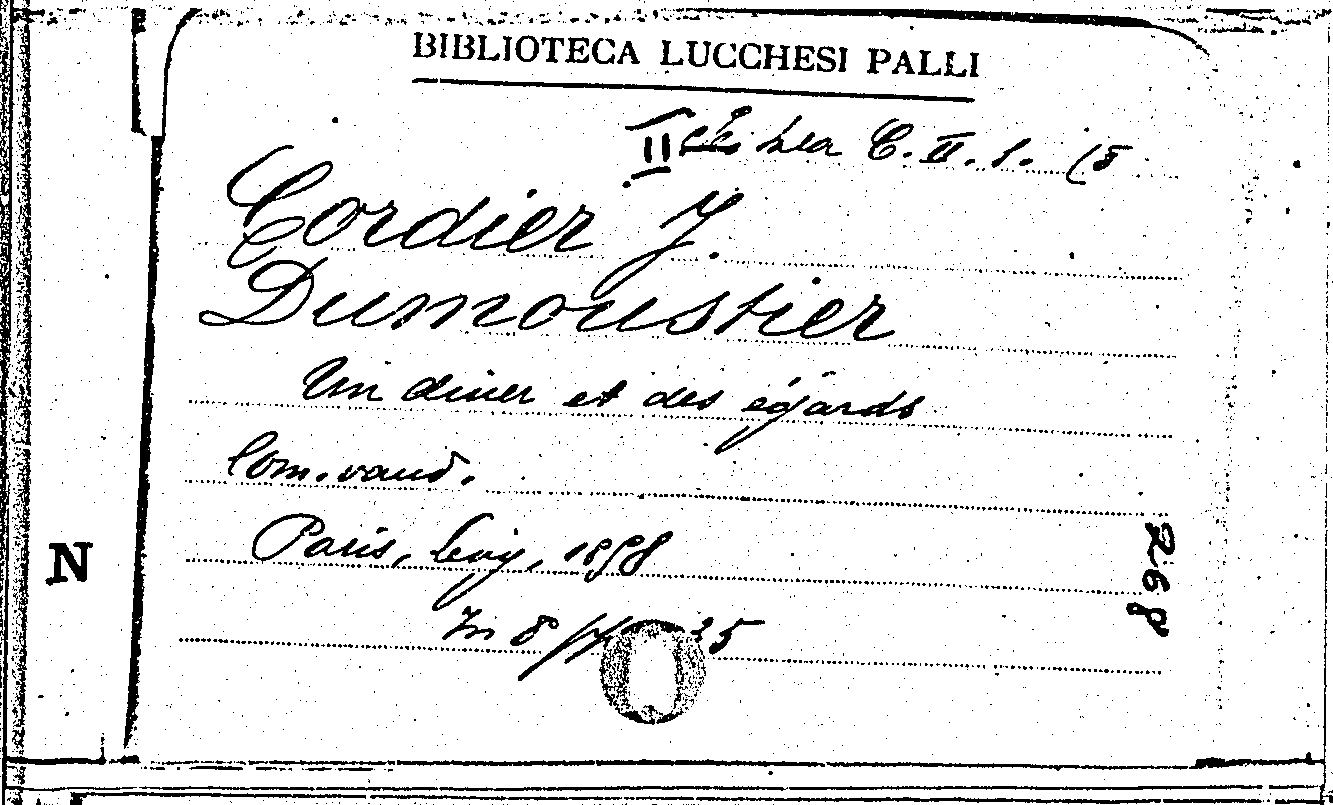 BIBLIOTECA LUCCHESI PALLI
II C. II. 1. (5
Cordier J.
Dumoustier
Un diner et des égards
Com. vaud.
Paris, Levy, 1898
N
In 8 pp. 35
268